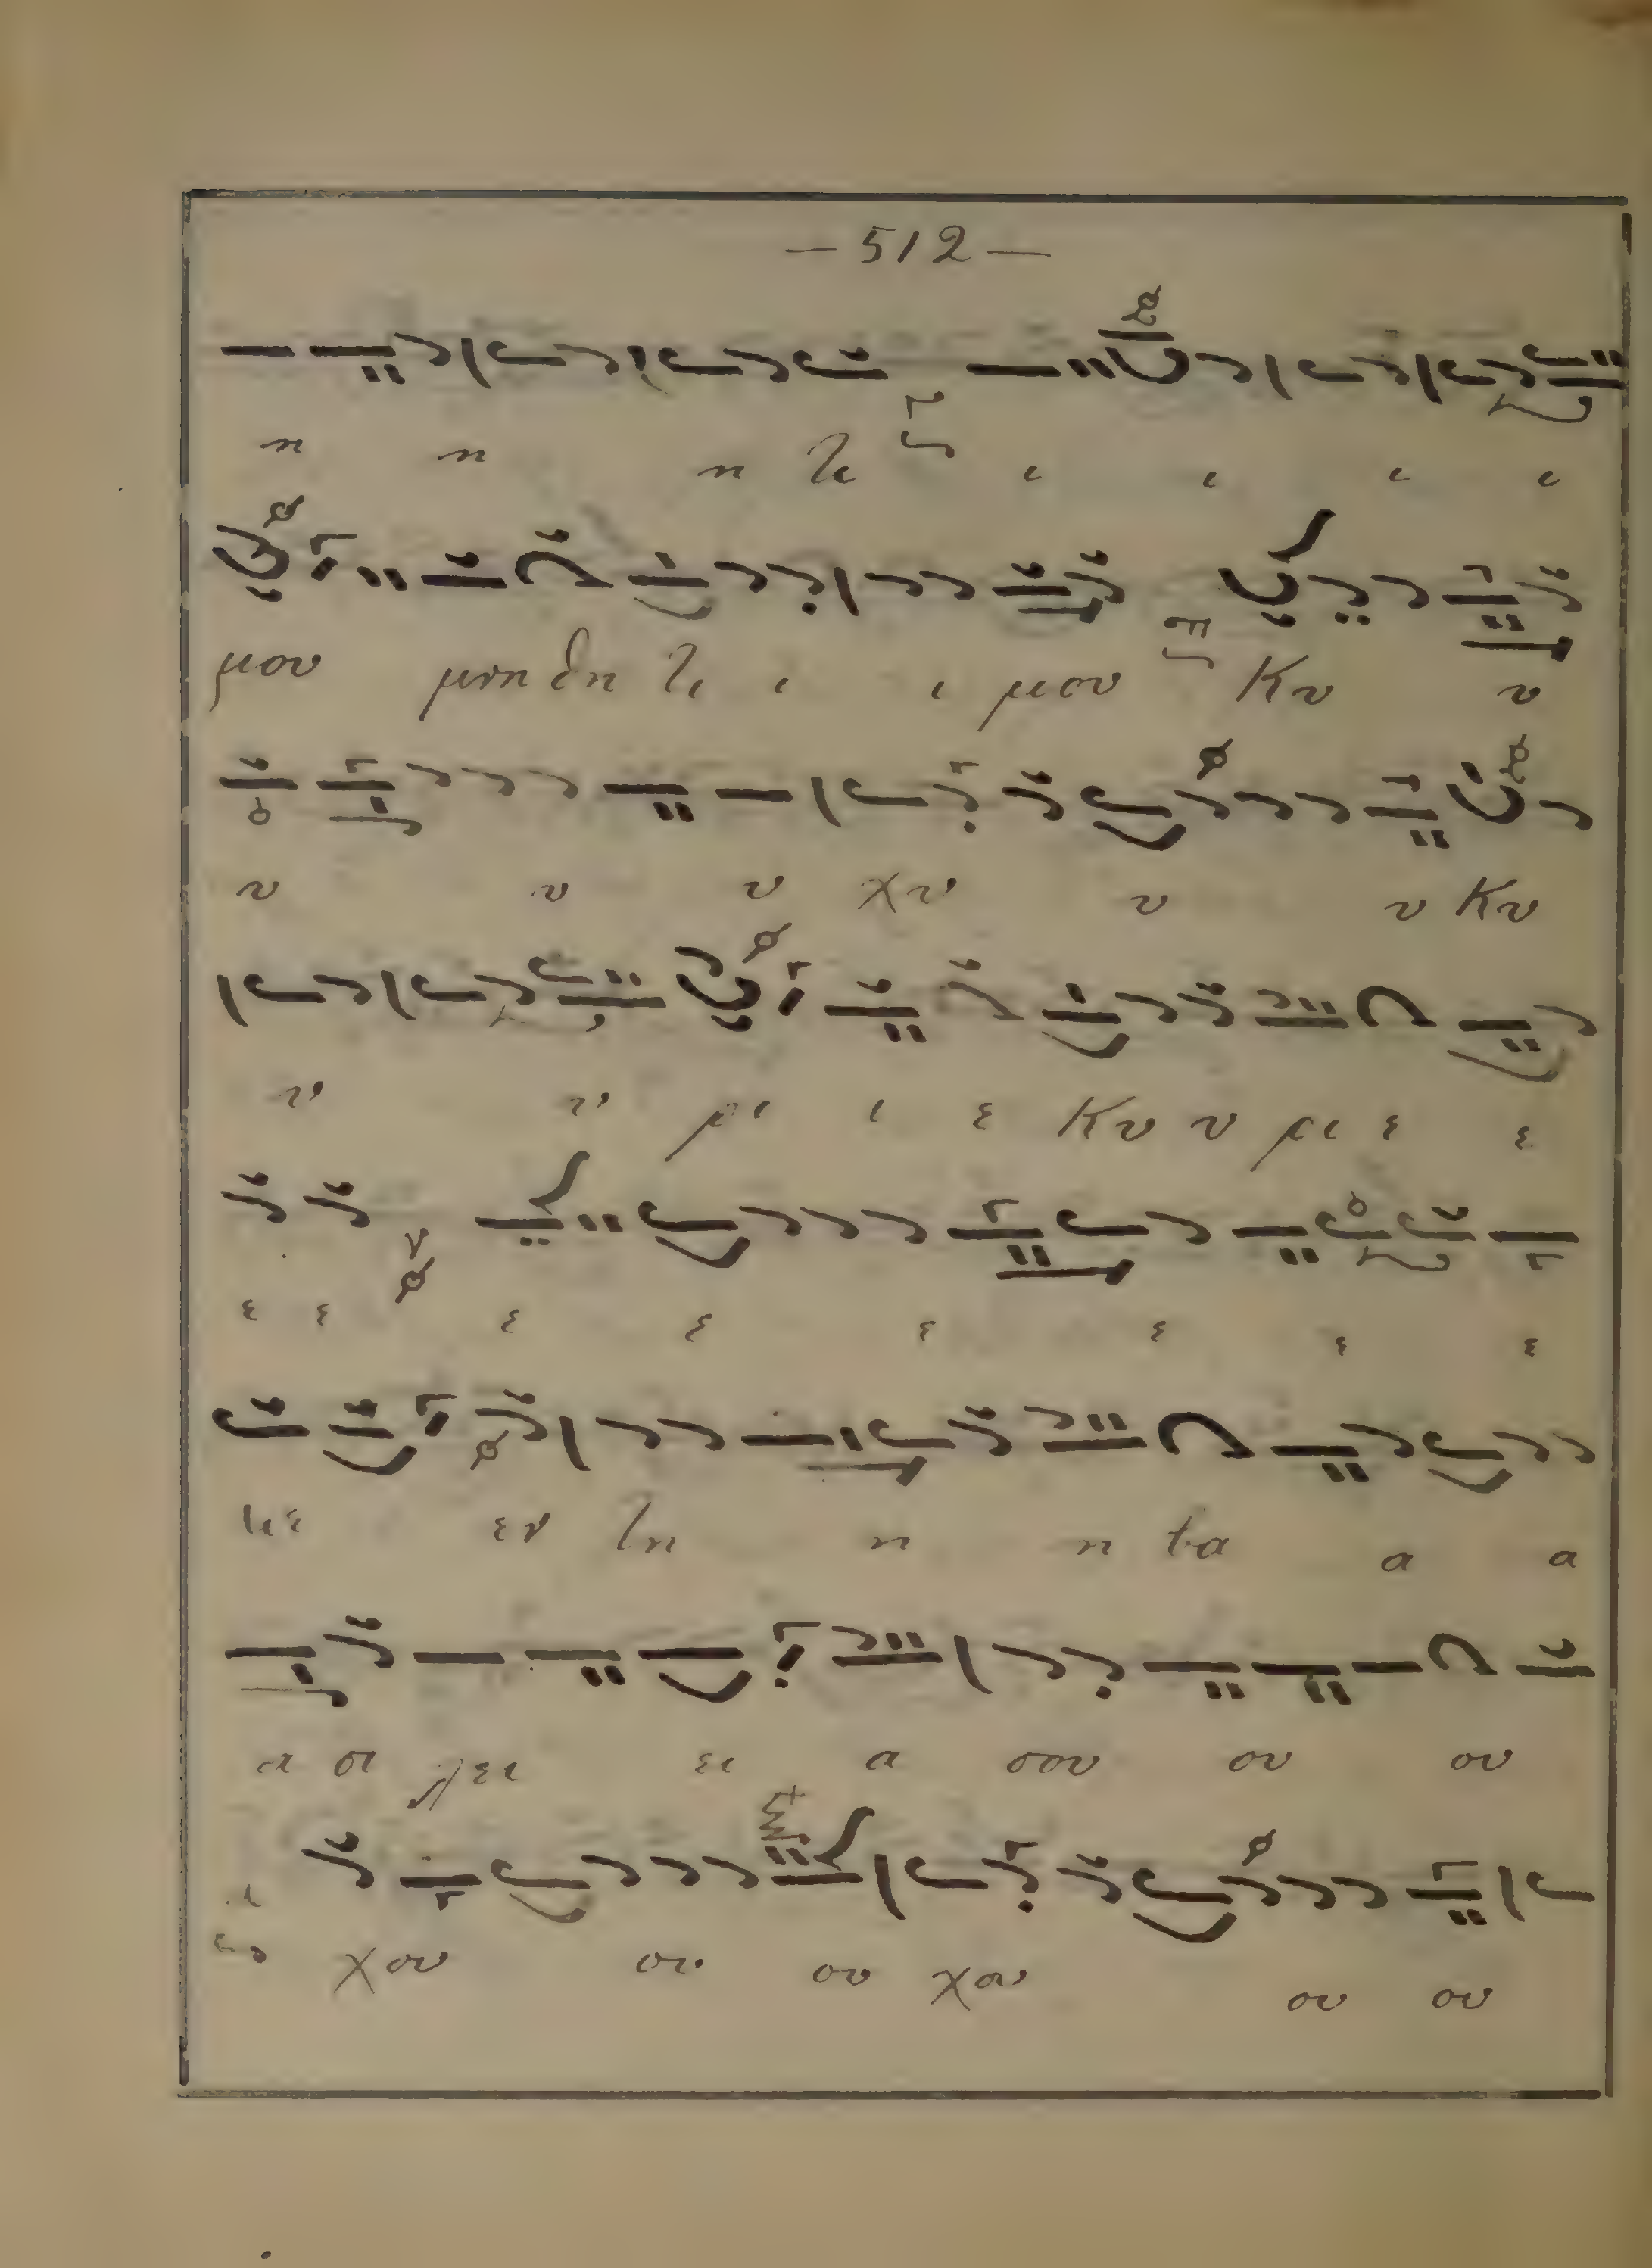 — 512 —
η η η τι ι ι ι ι
μου μνη θη τι ι ι μου Κυ υ
υ υ υ χυ υ υ Κυ
υ υ ρι ι ε Κυ υ ρι ε ε
ε ε ε ε ε ε ε ε
εν τη η η βα α α
α σι λει ει α σου ου ου
χου ου ου χου ου ου